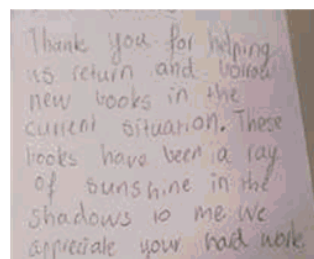 Thank you for helping
us return and borrow
new books in the
current situation. These
books have been a ray
of sunshine in the
shadows to me we
appreciate your hard work